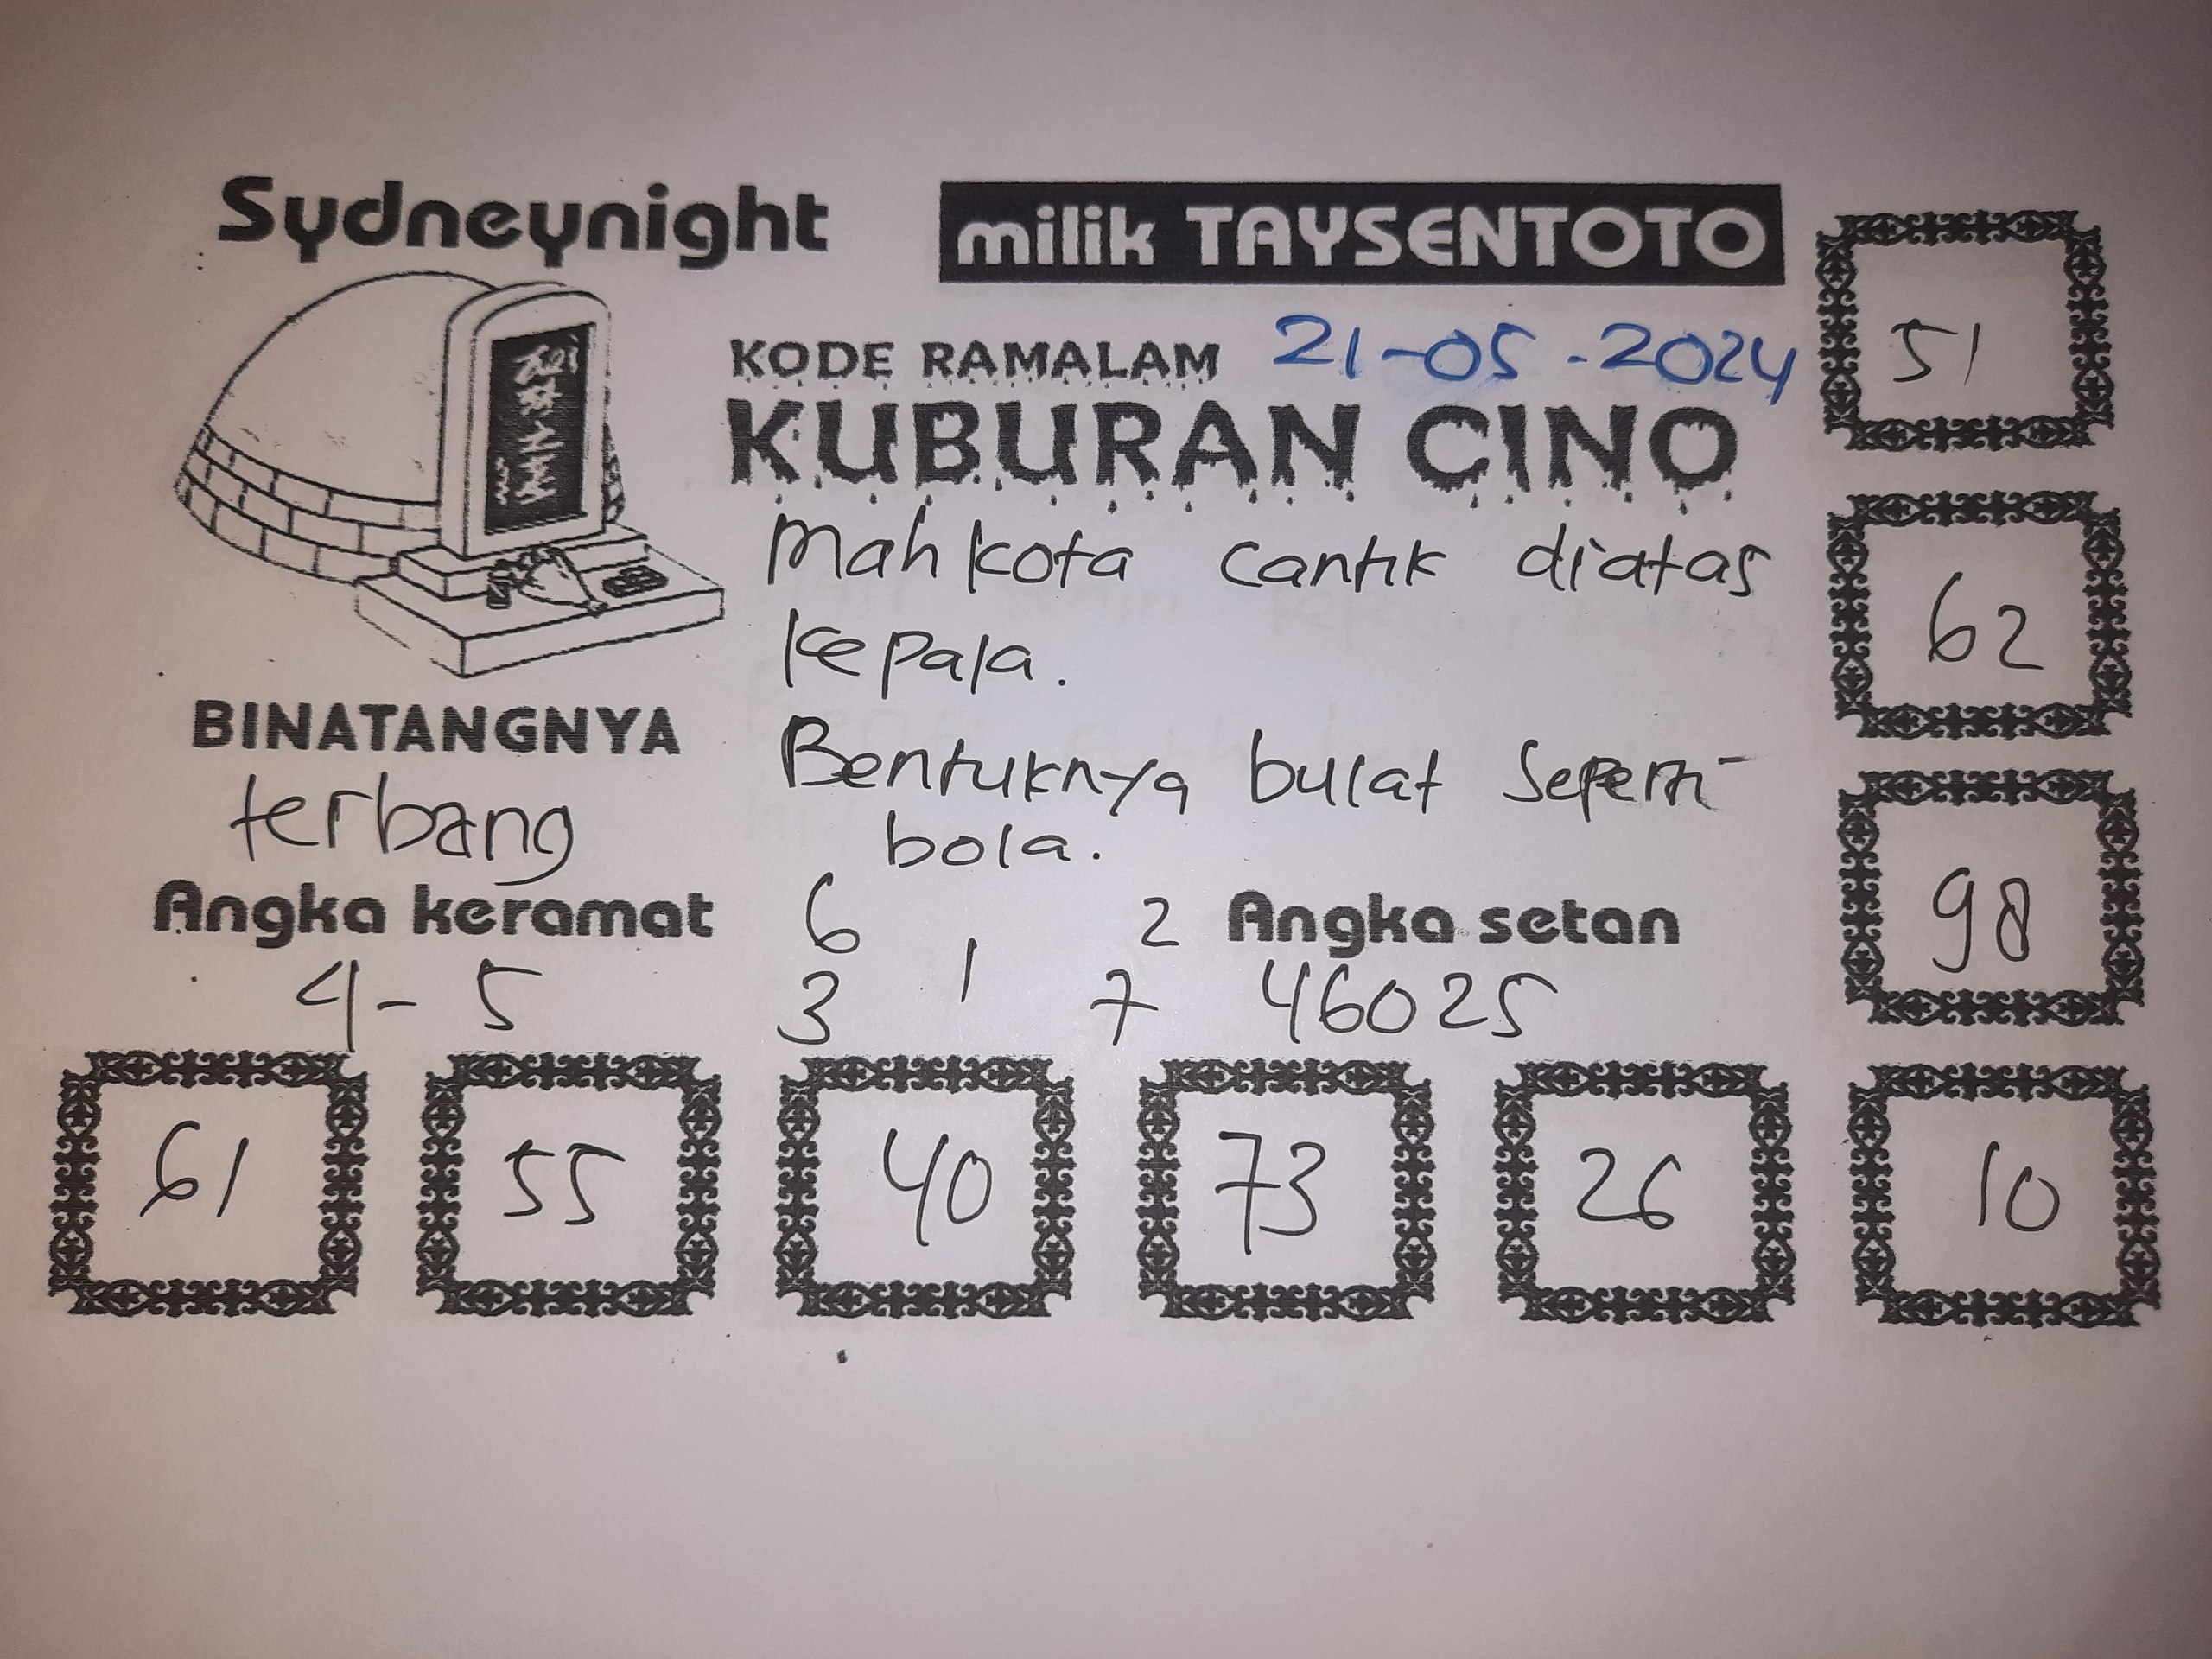 Sydneynight
milik TAYSENTOTO
KODE RAMALAM 21-05-2024
KUBURAN CINO
Mahkota cantik diatas
kepala.
Bentuknya bulat seperti
bola.
BINATANGNYA
terbang
Angka keramat
4-5
6 2
1
3 7
Angka setan
46025
51
62
98
61 55 40 73 26 10